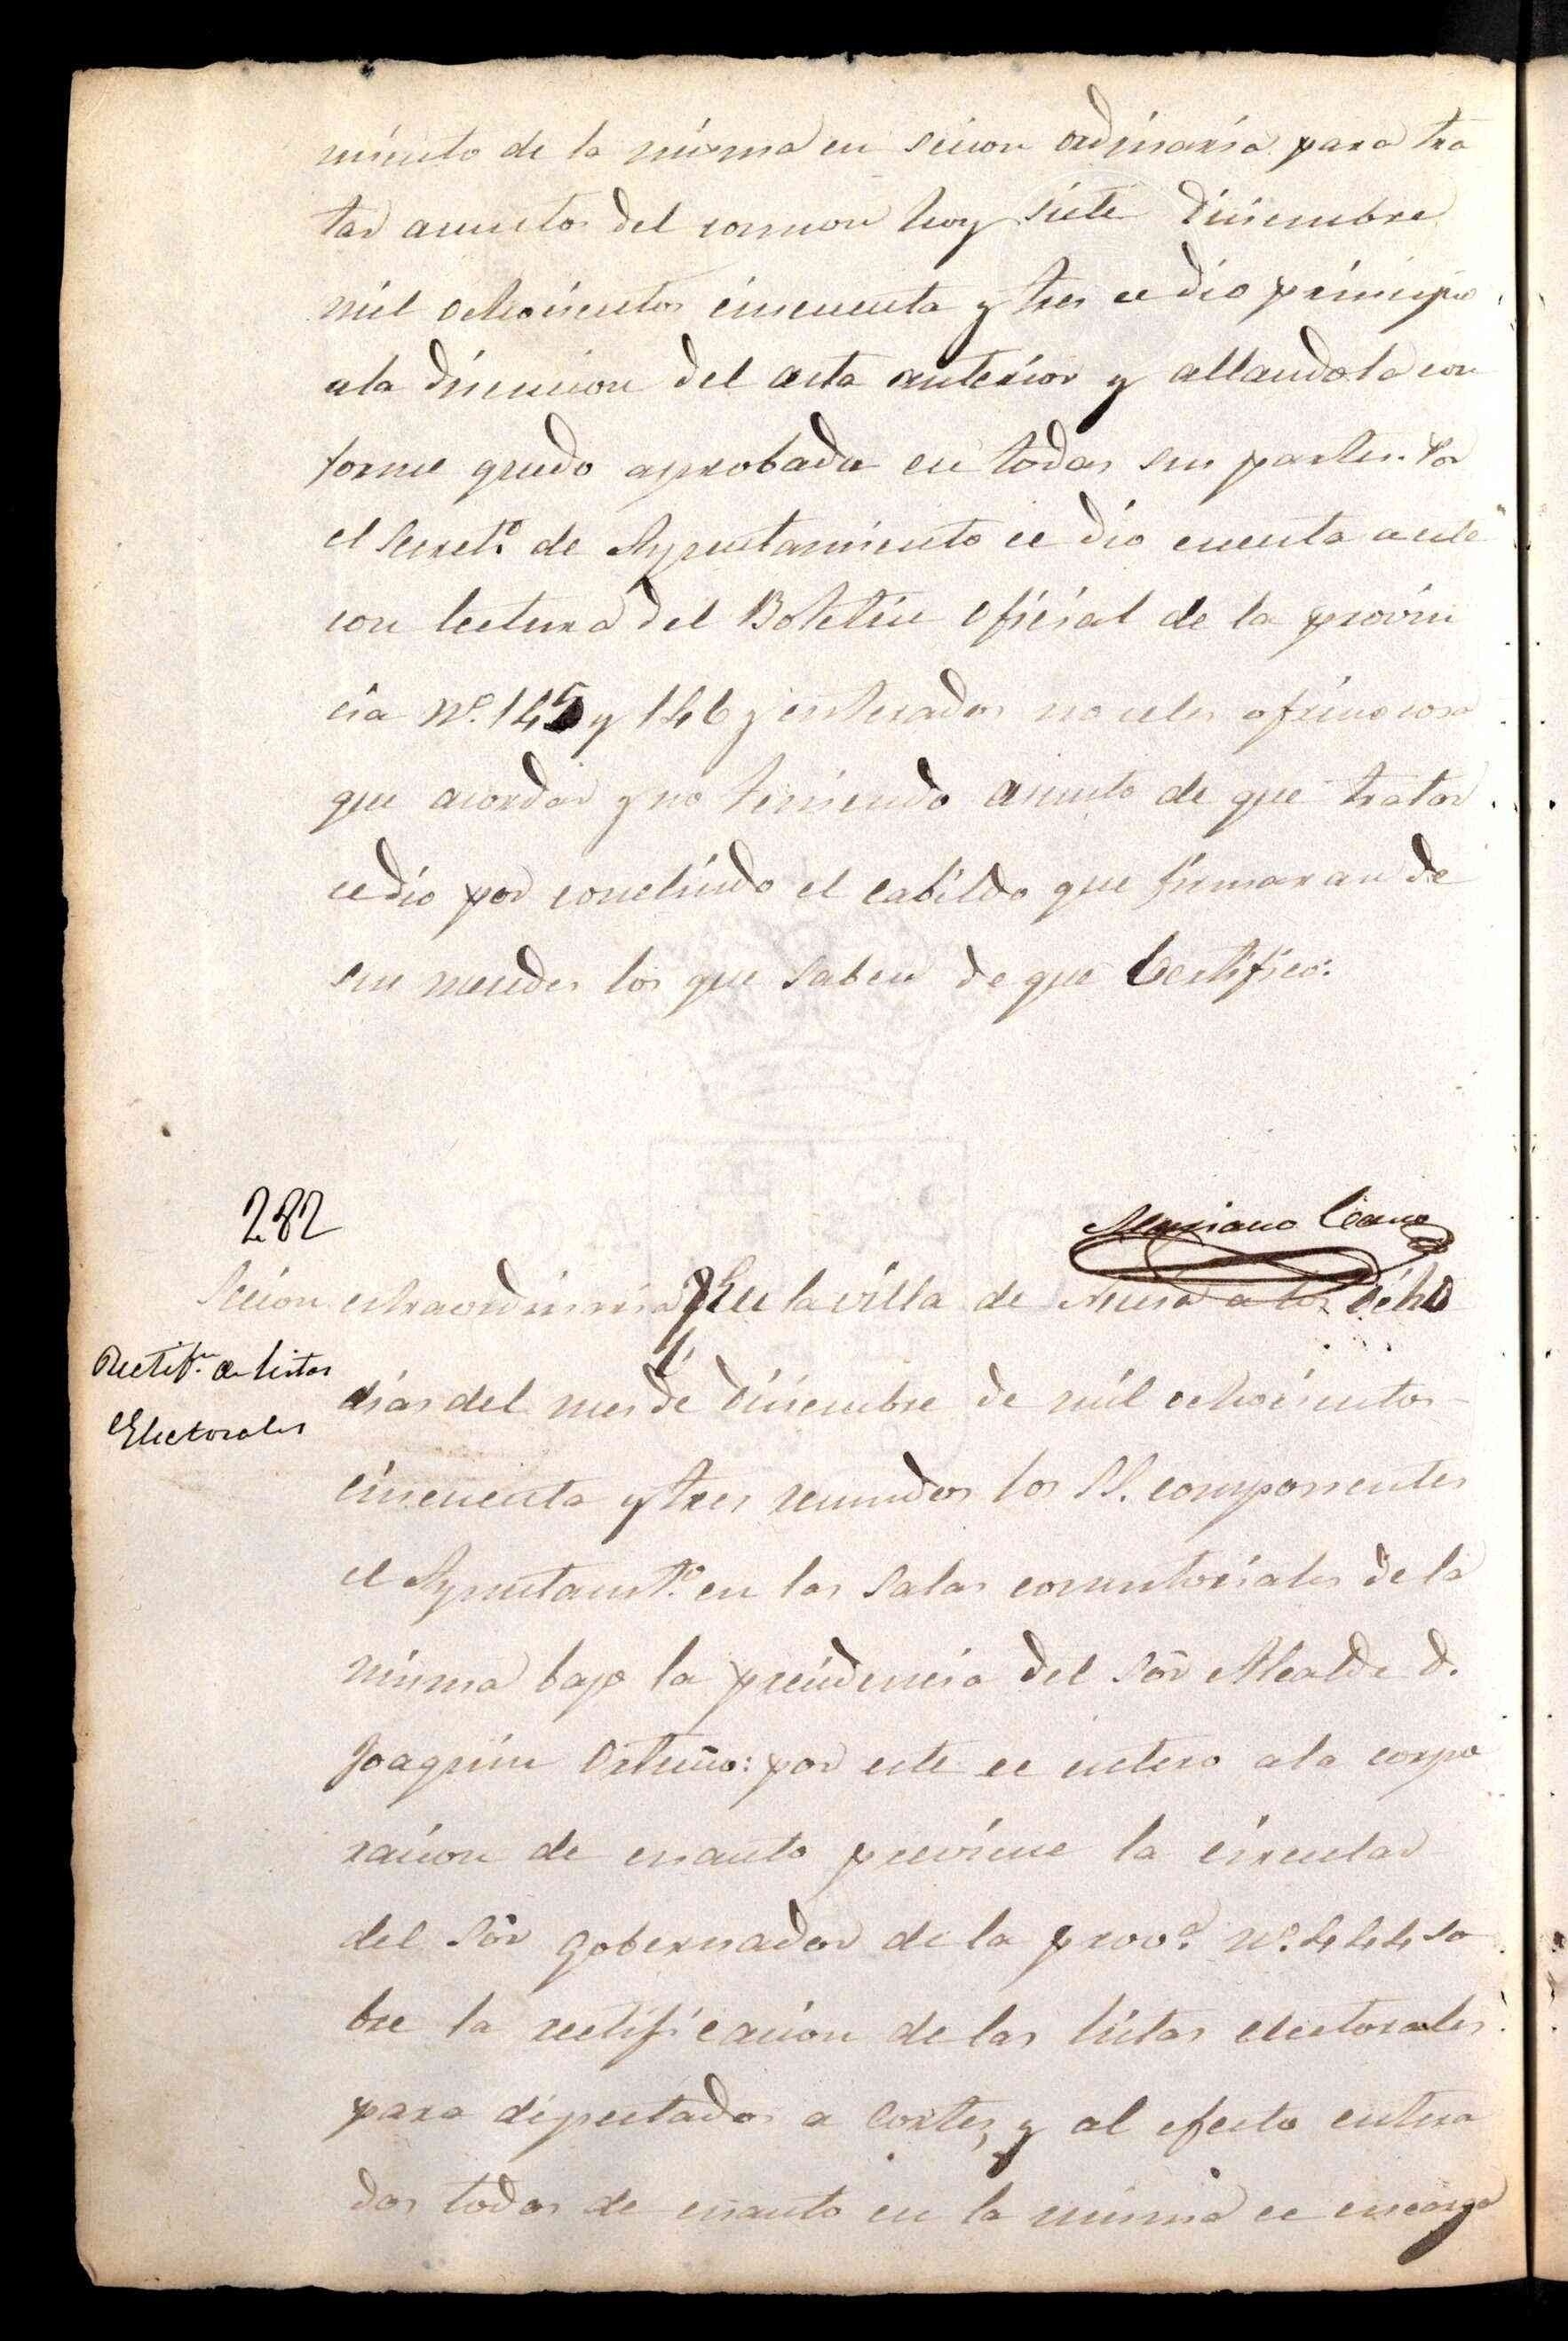 miento de la misma en secion ordinaria para tra
tar asuntos del comun hoy siete Diciembre
mil ochocientos cincuenta y tres ce dio principio
ala discucion del acta anterior y allandola con
forme quedo aprobada en todas sus partes. Por
el Secret.º de Ayuntamiento ce dio cuenta a este
con lectura del Boletin oficial de la provin
cia Nº. 145 y 146 y enterados no celes ofrecio cosa
que acordar y no teniendo asunto de que tratar
ce dio por concluido el cabildo que firmaran de
sus mercedes los que saben de que Certifico:
Mariano Cano
282
Secion estraordinaria En la villa de a los ocho
Rectif.on de listas
Electorales
dias del mes de Diciembre de mil ochocientos
cincuenta y tres reunidos los SS. componentes
el Ayuntamt.º en las Salas consistoriales de la
misma bajo la precidencia del Sōr Alcalde D.
Joaquin Ortuño: por este ce entero ala corpo
racion de cuanto previene la circular
del Sōr Gobernador de la prov.ª nº. 444 so
bre la rectificacion de las listas electorales
para diputados a Cortes, y al efecto entera
dos todos de cuanto en la misma ce encarga